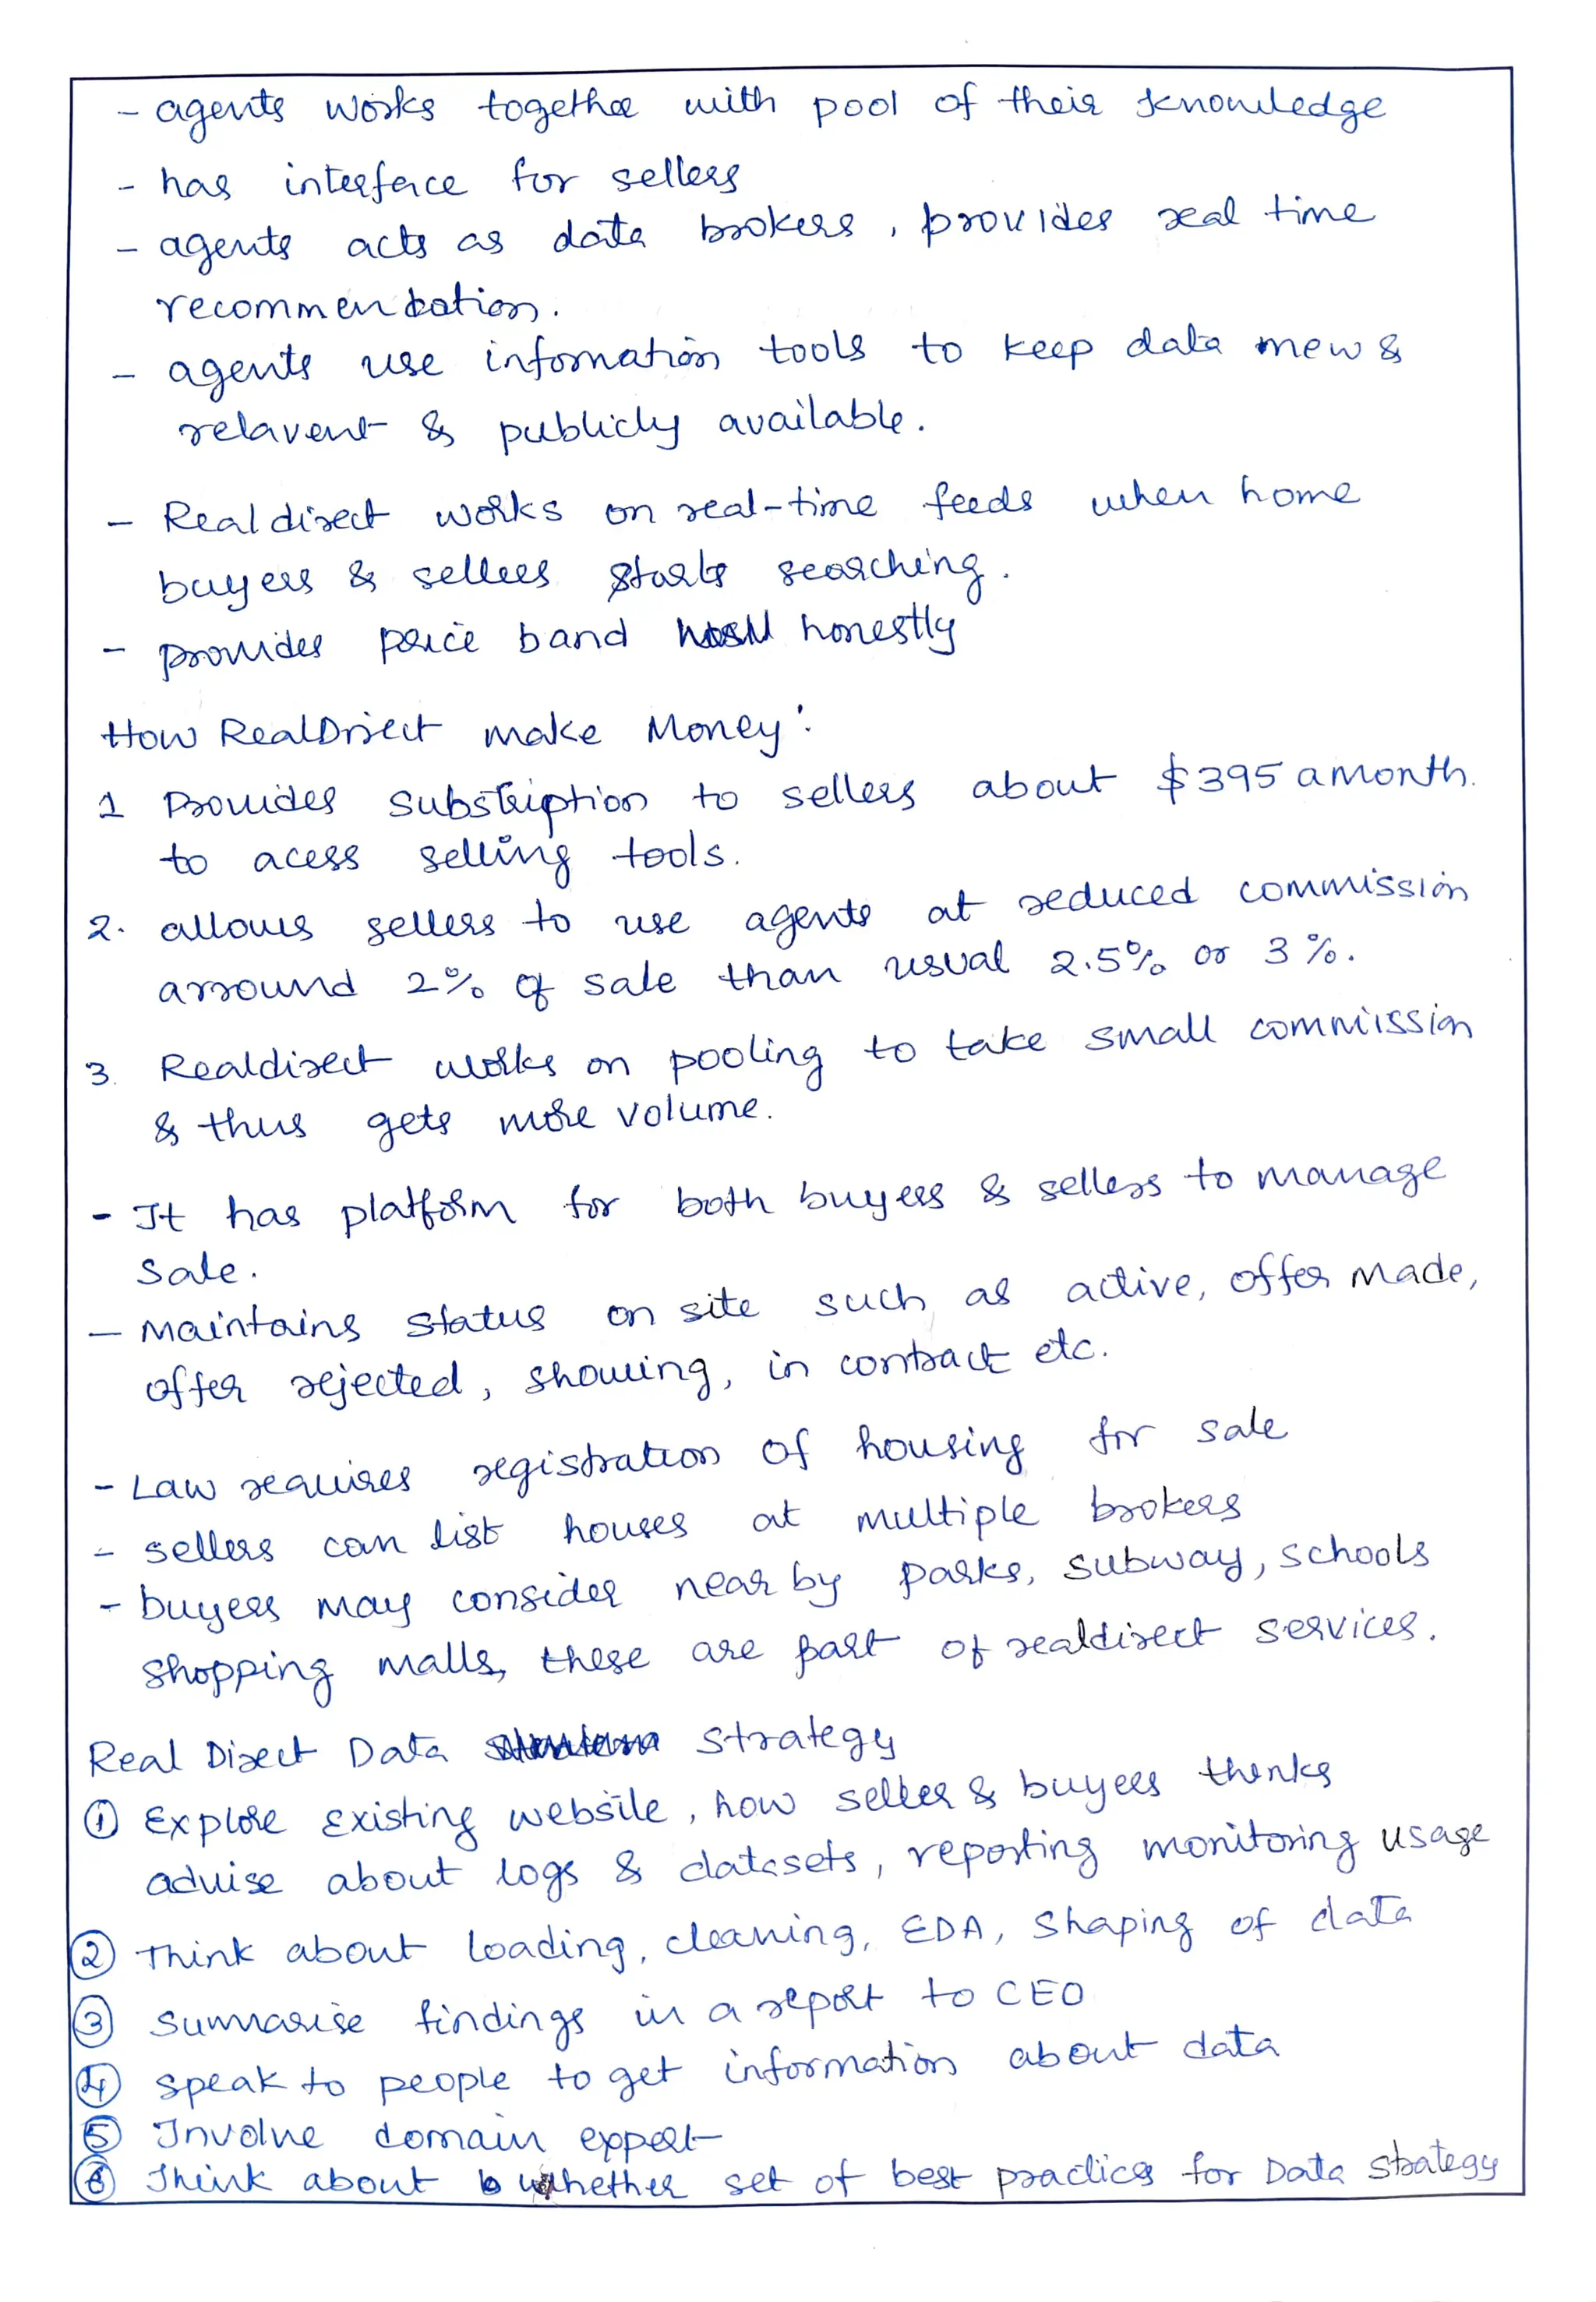 - agents works together with pool of their knowledge
- has interface for sellers
- agents acts as data brokers, provides real time
recommendation.
- agents use information tools to keep data new &
relavent & publicly available.
- Realdirect works on real-time feeds when home
buyers & sellers starts searching.
- provides price band honestly
How RealDirect make Money:
1 Provides subscription to sellers about $395 a month.
to acess selling tools.
2. allows sellers to use agents at reduced commission
arround 2% of sale than usual 2.5% or 3%.
3. Realdirect works on pooling to take small commission
& thus gets more volume.
- It has platform for both buyers & sellers to manage
sale.
- Maintains status on site such as active, offer made,
offer rejected, showing, in contract etc.
- Law requires registration of housing for sale
- sellers can list houses at multiple brokers
- buyers may consider near by parks, subway, schools
shopping malls, these are part of realdirect services.
Real Direct Data Strategy
① Explore existing website, how seller & buyers thinks
advise about logs & datasets, reporting monitoring usage
② Think about loading, cleaning, EDA, shaping of data
③ summarise findings in a report to CEO
④ speak to people to get information about data
⑤ Involve domain expert
⑥ Think about whether set of best practices for Data strategy